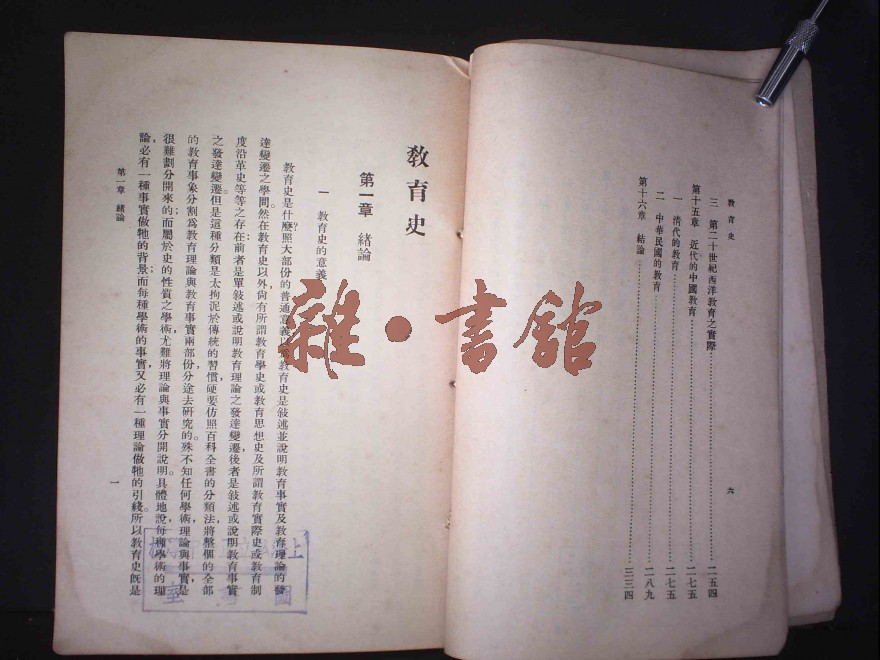 教育史
三　第二十世紀西洋教育之實際……二五四
第十五章　近代的中國教育……二七五
一　清代的教育……二七五
二　中華民國的教育……二八九
第十六章　結論……三三四
六
教育史
第一章　緒論
一　教育史的意義
教育史是什麼？照大部份的普通意義以爲教育史是敍述並說明教育事實及教育理論的發
達變遷之學問。然在教育史以外，尙有所謂教育學史或教育思想史及所謂教育實際史或教育制
度沿革史等等之存在；前者是單敍述或說明教育理論之發達變遷，後者是敍述或說明教育事實
之發達變遷。但是這種分類是太拘泥於傳統的習慣，硬要仿照百科全書的分類法，將整個的全部
的教育事象分割爲教育理論與教育事實兩部份，分途去研究的。殊不知任何學術，理論與事實，是
很難劃分開來的；而屬於史的性質之學術，尤難將理論與事實分開說明。具體地說，每種學術的理
論，必有一種事實做牠的背景；而每種學術的事實，又必有一種理論做牠的引綫。所以教育史旣是
第一章　緒論
一
雜·書館
上
圖
室